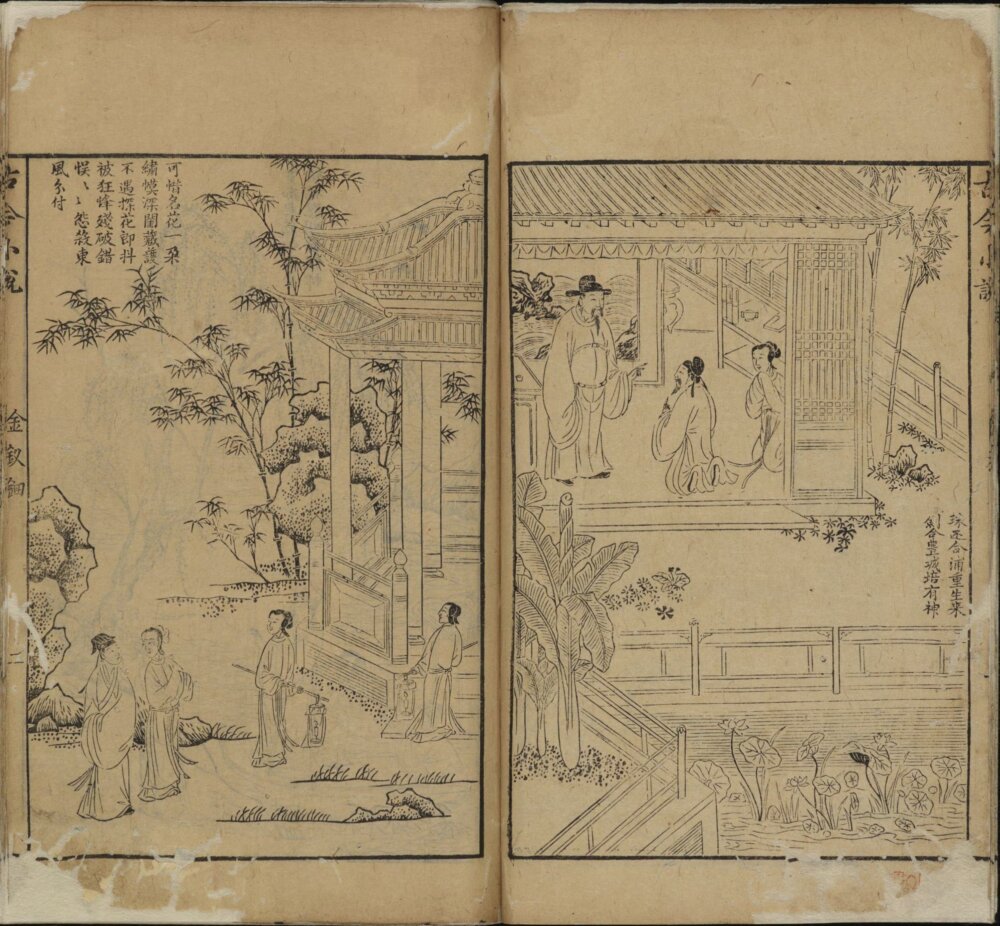 古今小說
珠还合浦重生采
劍合豊城倍有神
可惜名花一朶
繡幙深閨藏護
不遇探花郎抖
被狂蜂殘破錯
悞〻〻怨殺東
風分付
古今小說
金釵鈿